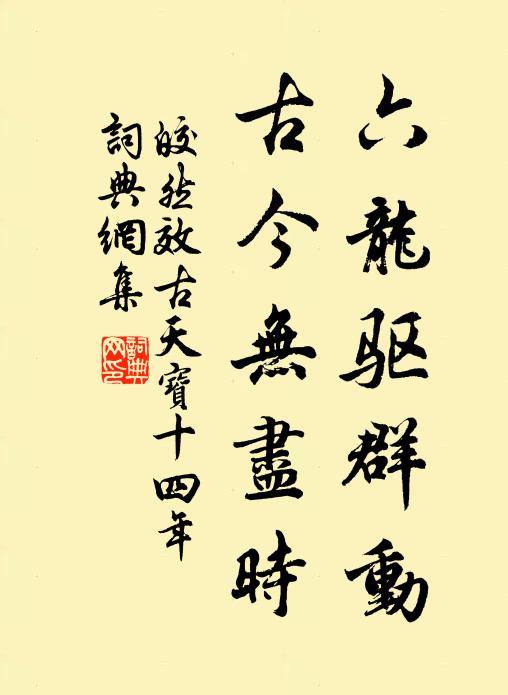 六龍驱群動
古今無盡時
皎然效古天寶十四年
詞典網集
詞典网印